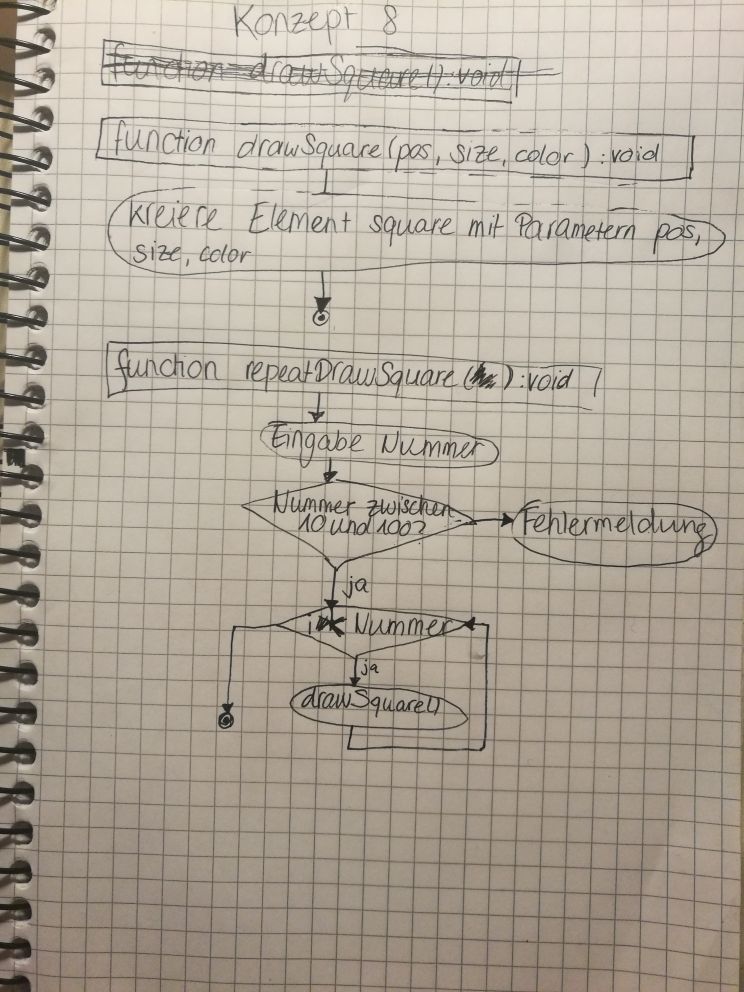 Konzept 8
function drawSquare(): void
function drawSquare(pos, size, color): void
kreiere Element square mit Parametern pos,
size, color
function repeatDrawSquare( ): void
Eingabe Nummer
Nummer zwischen
10 und 100?
Fehlermeldung
ja
i < Nummer
ja
drawSquare()